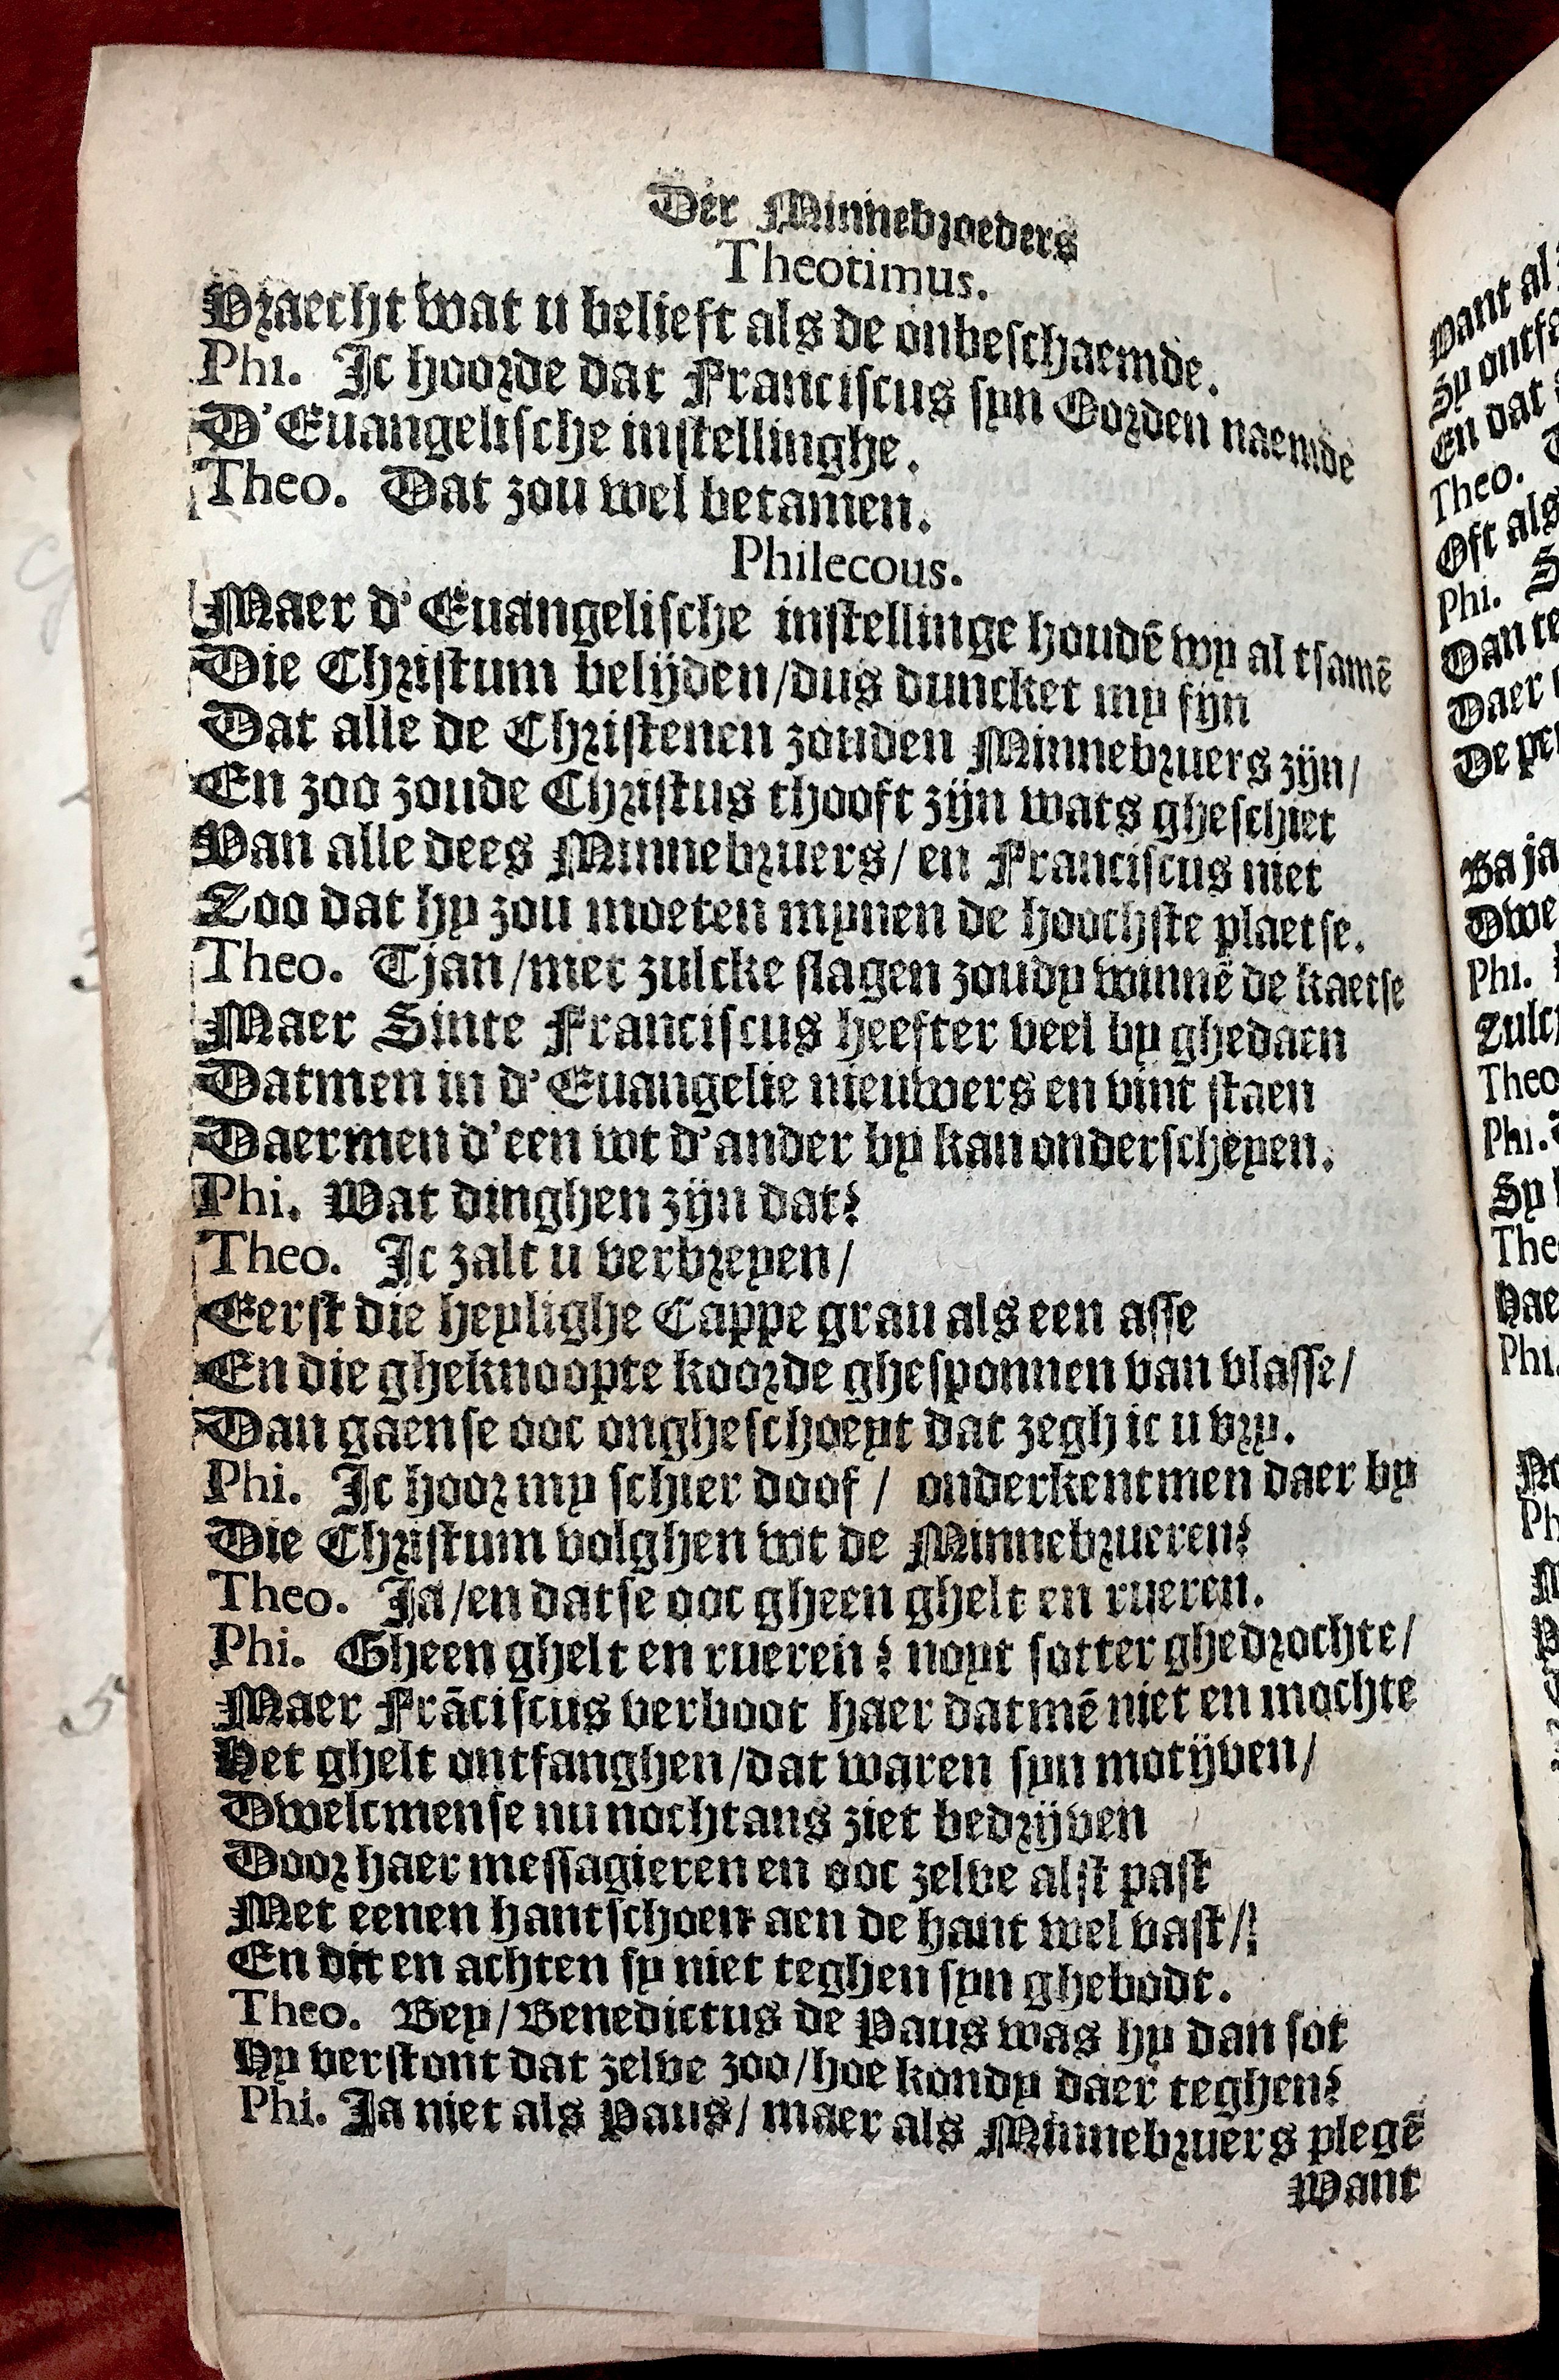 Der Minnebroeders
Theotimus.
Vraecht wat u belieft als de onbeschaemde.
Phi. Ic hoorde dat Franciscus syn Oorden naemde
D'Euangelische instellinghe.
Theo. Dat zou wel betamen.
Philecous.
Maer d'Euangelische instellinge houdē wy al tsamē
Die Christum belijden/dus duncket my fijn
Dat alle de Christenen zouden Minnebruers zijn/
En zoo zoude Christus thooft zijn wats gheschiet
Van alle dees Minnebruers/en Franciscus niet
Zoo dat hy zou moeten mynen de hoochste plaetse.
Theo. Tjan/met zulcke slagen zoudy winnē de kaetse
Maer Sinte Franciscus heefter veel by ghedaen
Datmen in d'Euangelie nieuwers en vint staen
Daermen d'een wt d'ander by kan onderscheyen.
Phi. Wat dinghen zijn dat?
Theo. Ic zalt u verbreyen/
Eerst die heylighe Cappe grau als een asse
En die gheknoopte koorde ghesponnen van vlasse/
Dan gaense ooc ongheschoeyt dat zegh ic u vry.
Phi. Ic hoor my schier doof/ onderkentmen daer by
Die Christum volghen wt de Minnebrueren?
Theo. Ja/en datse ooc gheen ghelt en rueren.
Phi. Gheen ghelt en rueren? noyt sotter ghedrochte/
Maer Frāciscus verboot haer datmē niet en mochte
Het ghelt ontfanghen/dat waren syn motijven/
Twelcmense nu nochtans ziet bedrijven
Door haer messagieren en ooc zelve alst past
Met eenen hantschoen aen de hant wel vast/
En dit en achten sy niet teghen syn ghebodt.
Theo. Bey/Benedictus de Paus was hy dan sot
Hy verstont dat zelve zoo/hoe kondy daer teghen?
Phi. Ja niet als Paus/maer als Minnebruers plegē
Want
want al
Sy ontf
En dat
Theo.
Oft als
Phi.
Dan te
Daer
De
Ba ja
Phi.
Theo
Phi.
Sy
Phi.